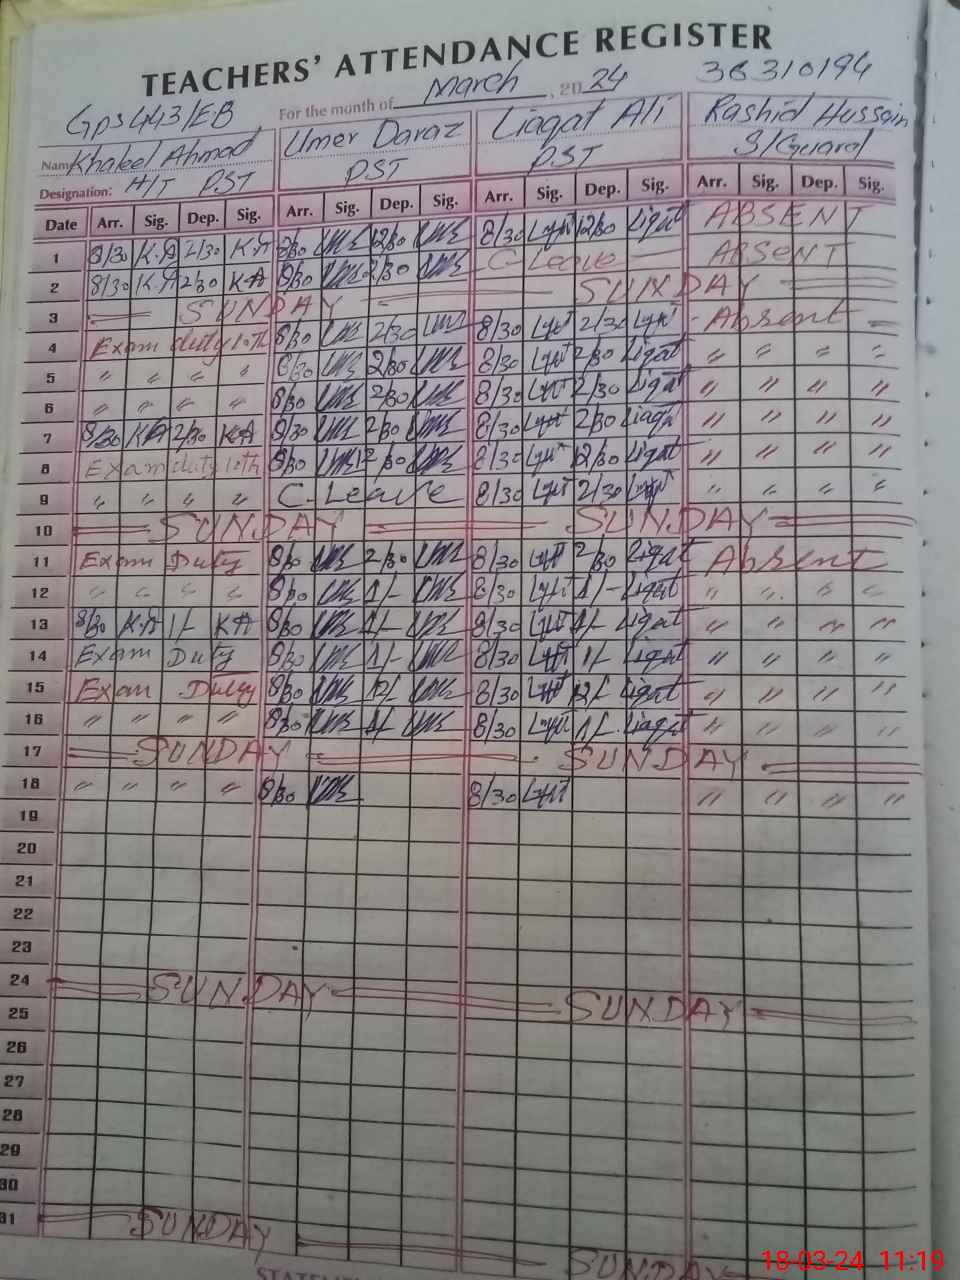 TEACHERS' ATTENDANCE REGISTER
Gps 443/EB For the month of March, 20 24 38310194
Name Khaleel Ahmad Umer Daraz Liaqat Ali Rashid Hussain
Designation: H/T PST PST PST S/Guard
Date Arr. Sig. Dep. Sig. Arr. Sig. Dep. Sig. Arr. Sig. Dep. Sig. Arr. Sig. Dep. Sig.
1 8/30 K.A 2/30 K.A 8/30 12/30 8/30 12/30 Liqat ABSENT
2 8/30 K.A 2/30 KA 8/30 2/30 C-Leave ABSENT
3 SUNDAY SUNDAY
4 Exam duty 10th 8/30 2/30 8/30 2/30 Absent
5 " " " " 8/30 2/30 8/30 2/30 Liqat " " " "
6 " " " " 8/30 2/30 8/30 2/30 Liqat " " " "
7 8/30 KA 2/30 KA 8/30 2/30 8/30 2/30 Liaqat " " " "
8 Exam duty 10th 8/30 12/30 8/30 12/30 Liqat " " " "
9 " " " " C-Leave 8/30 2/30 " " " "
10 SUNDAY SUNDAY
11 Exam Duty 8/30 2/30 8/30 2/30 Liqat Absent
12 " " " " 8/30 1/- 8/30 1/- Liqat " " " "
13 8/30 K.A 1/- KA 8/30 1/- 8/30 1/- Liqat " " " "
14 Exam Duty 8/30 1/- 8/30 1/- Liqat " " " "
15 Exam Duty 8/30 12/- 8/30 12/- Liqat " " " "
16 " " " " 8/30 1/- 8/30 1/- Liaqat " " " "
17 SUNDAY SUNDAY
18 " " " " 8/30 8/30 " " " "
19
20
21
22
23
24 SUNDAY
25 SUNDAY
26
27
28
29
30
31 SUNDAY
SUNDAY
18-03-24 11:19